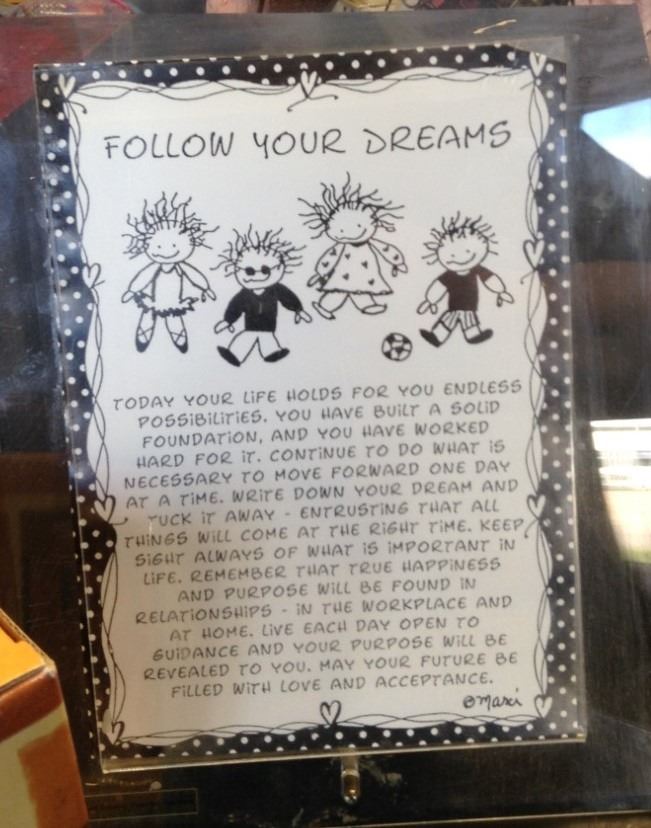 FOLLOW YOUR DREAMS
TODAY YOUR LiFE HOLDS FOR YOU ENDLESS
POSSiBiLiTiES. YOU HAVE BUiLT A SOLiD
FOUNDATiON, AND YOU HAVE WORKED
HARD FOR iT. CONTiNUE TO DO WHAT iS
NECESSARY TO MOVE FORWARD ONE DAY
AT A TiME. WRiTE DOWN YOUR DREAM AND
TUCK iT AWAY - ENTRUSTiNG THAT ALL
THiNGS WiLL COME AT THE RiGHT TiME. KEEP
SiGHT ALWAYS OF WHAT iS iMPORTANT iN
LiFE. REMEMBER THAT TRUE HAPPiNESS
AND PURPOSE WiLL BE FOUND iN
RELATiONSHiPS - iN THE WORKPLACE AND
AT HOME. LiVE EACH DAY OPEN TO
GUiDANCE AND YOUR PURPOSE WiLL BE
REVEALED TO YOU. MAY YOUR FUTURE BE
FiLLED WiTH LOVE AND ACCEPTANCE.
©Marci